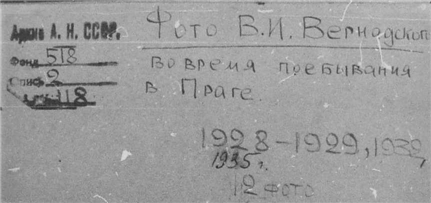 Архив А. Н. СССР.
Фонд 518
Опись 2
118
Фото В.И. Вернадского
во время пребывания
в Праге.
1928-1929, 1932,
1935 г.
12 фото